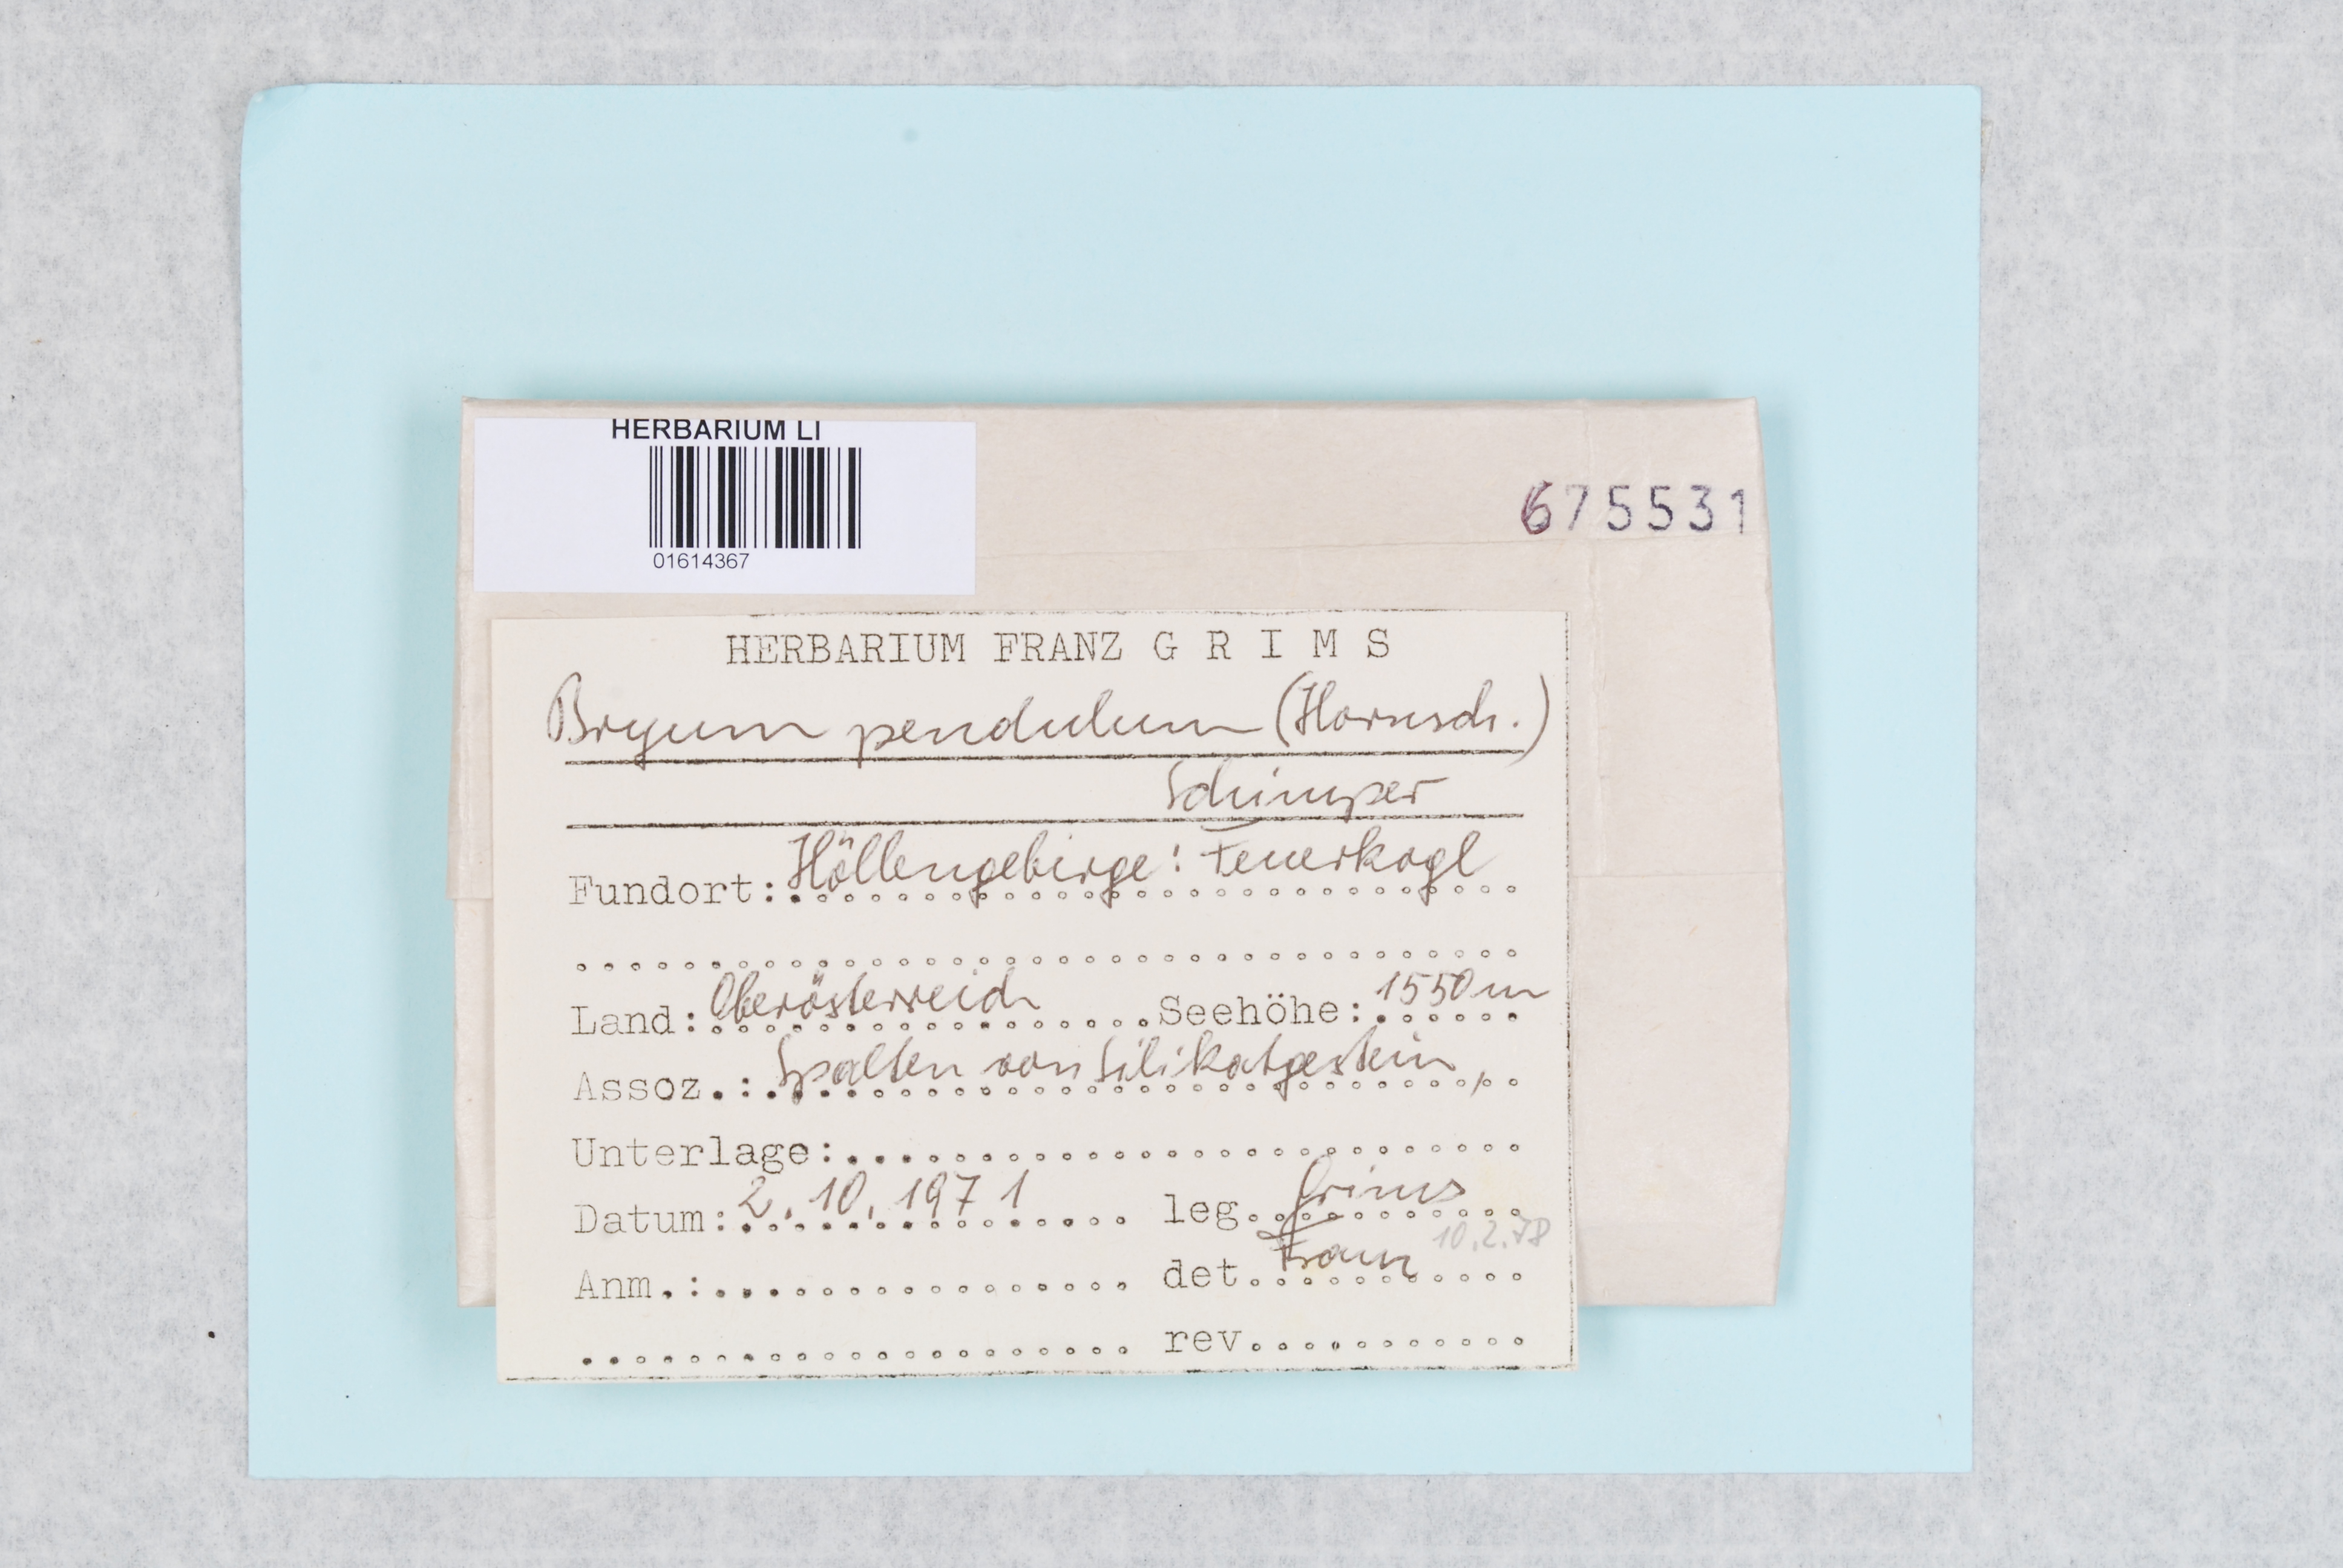 HERBARIUM LI
01614367
675531
HERBARIUM FRANZ G R I M S
Bryum pendulum (Hornsch.)
Schimper
Fundort: Höllengebirge: Feuerkogl
Land: Oberösterreich Seehöhe: 1550 m
Assoz.: Spalten von Silikatgestein,
Unterlage:
Datum: 2. 10. 1971 leg. Grims
Anm.: det. 10.2.78
rev.